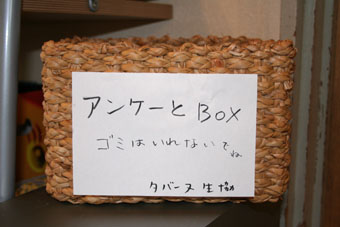 アンケーと BOX
ゴミはいれないでね
タバーヌ生協